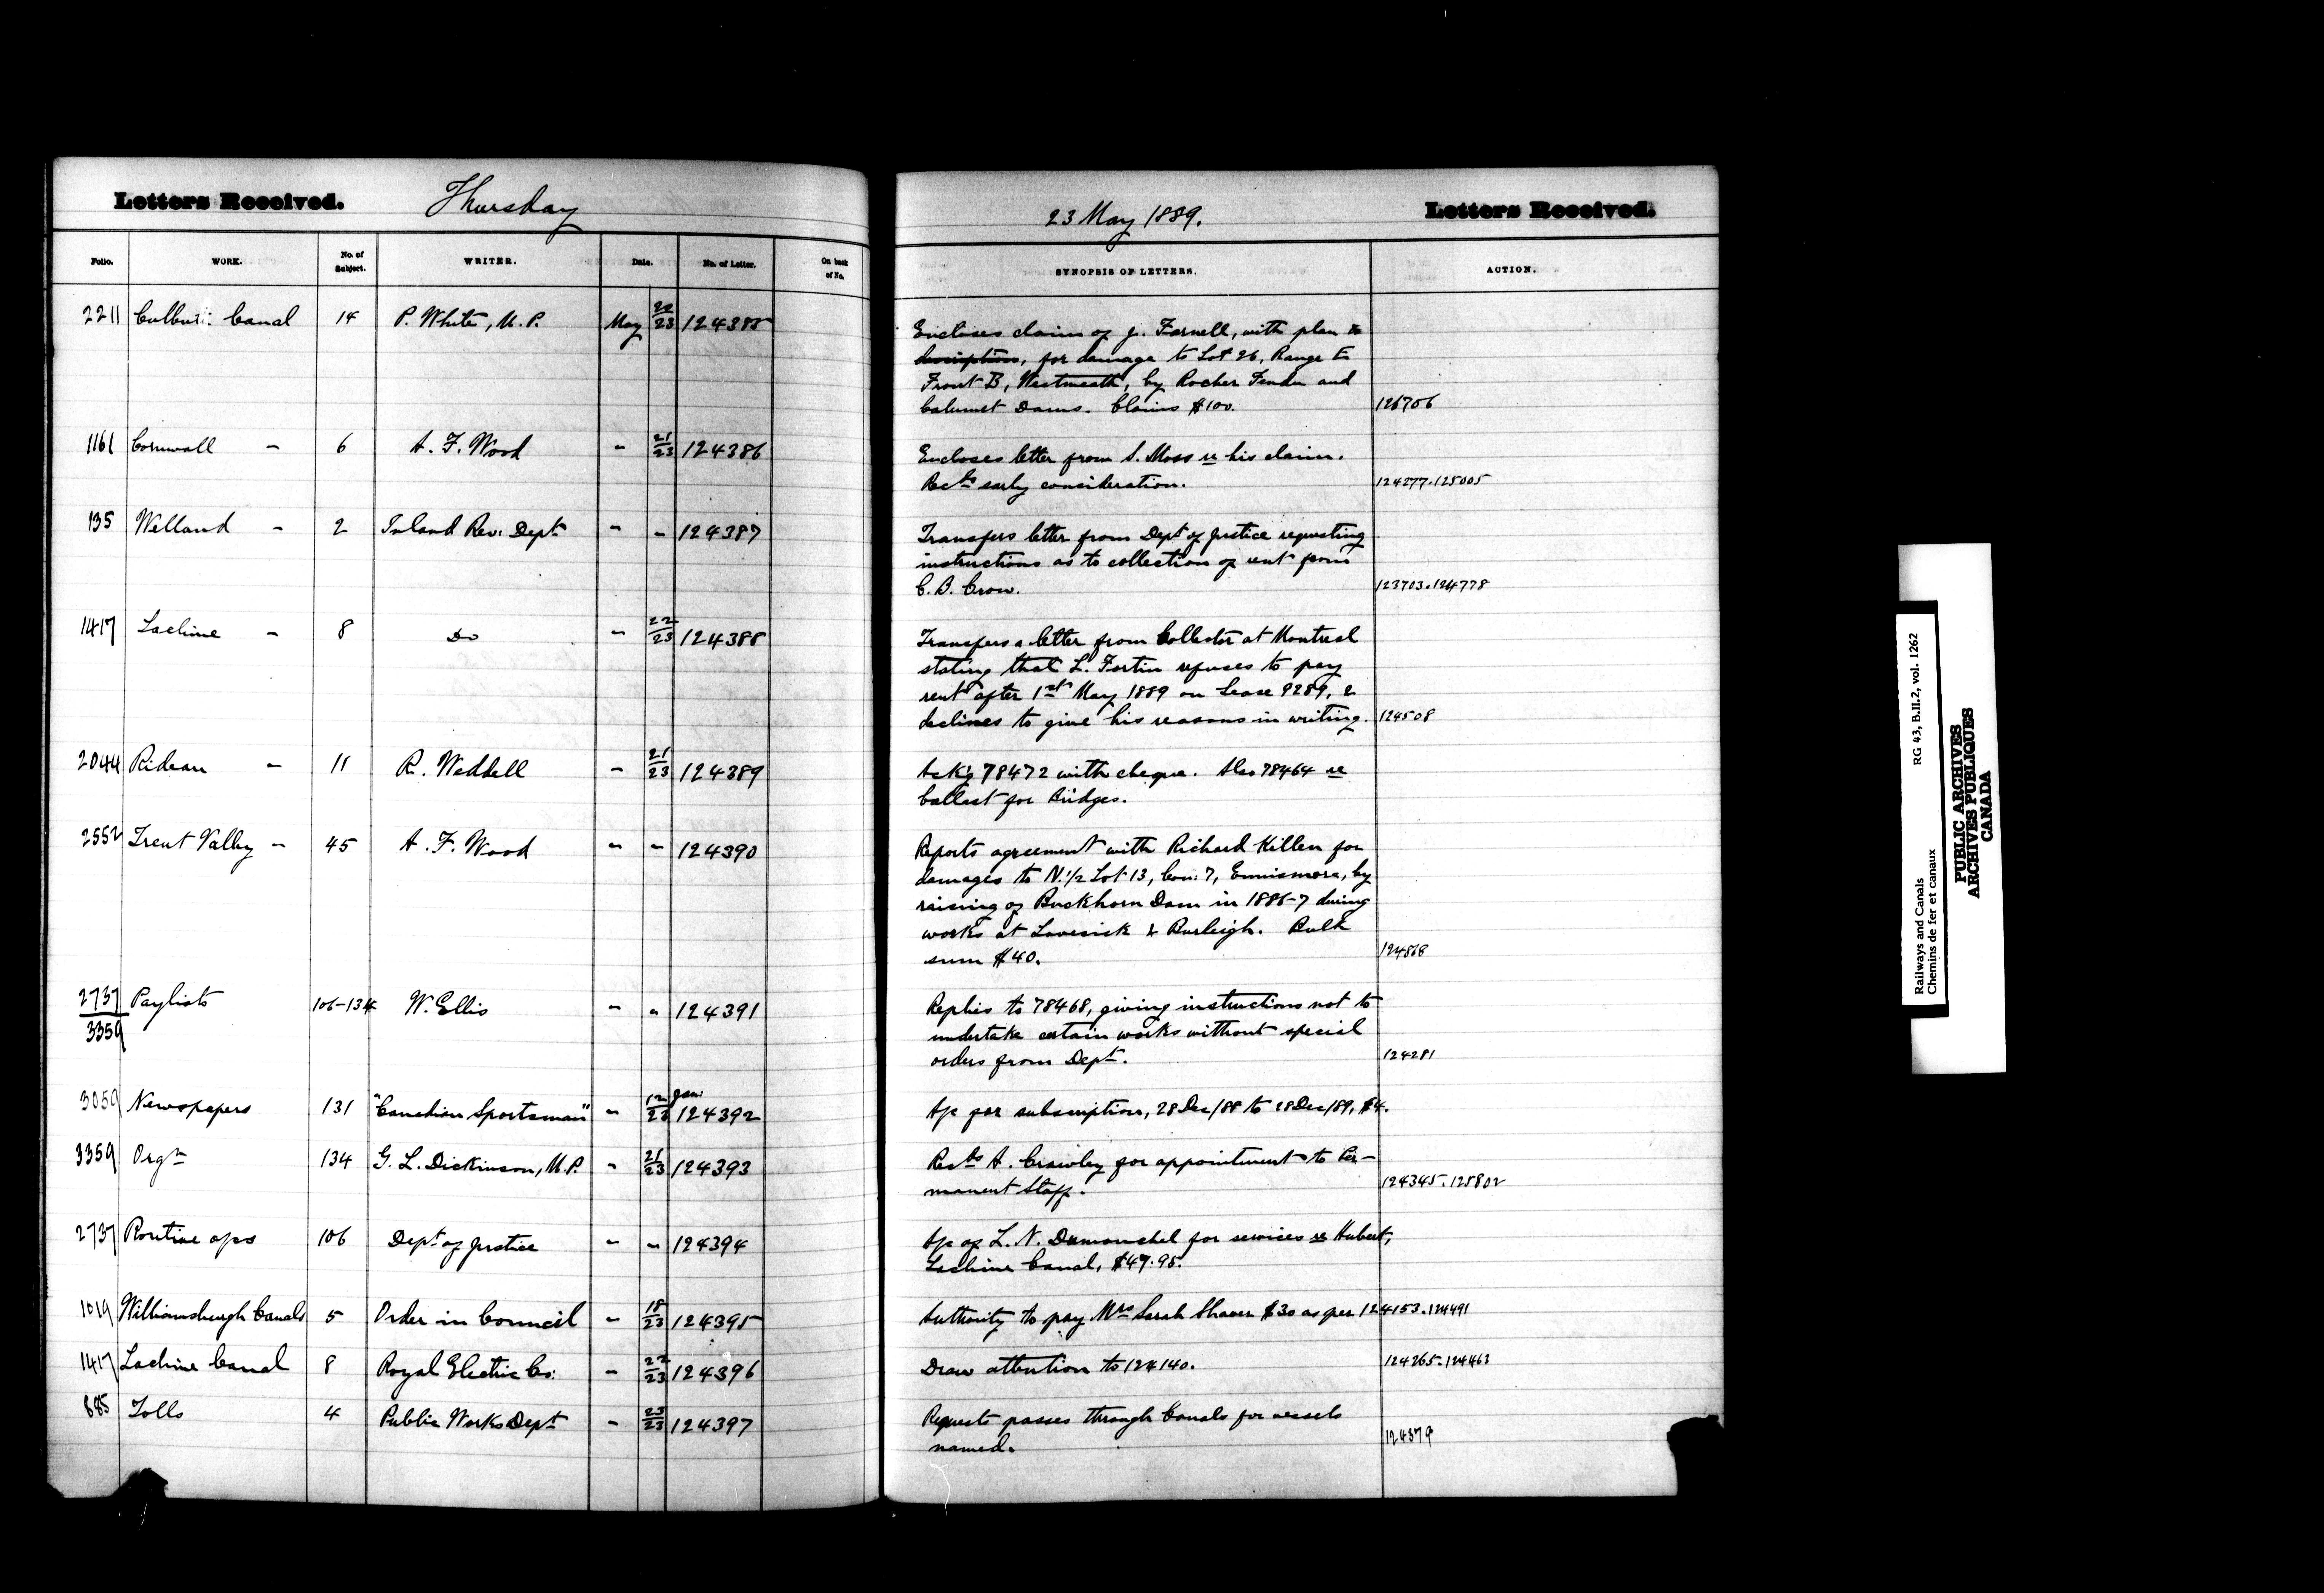 Letters Received. Thursday
Folio. WORK. No. of Subject. WRITER. Date. No. of Letter. On back of No.
2211 Culbute Canal 14 P. White, M.P. May 22/23 124385
1161 Cornwall - 6 A. F. Wood - 21/23 124386
135 Welland - 2 Inland Rev: Dept - - 124387
1417 Lachine - 8 Do - 22/23 124388
2044 Rideau - 11 R. Weddell - 21/23 124389
2552 Trent Valley - 45 A. F. Wood - - 124390
2737/3359 Paylists 106-134 W. Ellis - " 124391
3059 Newspapers 131 "Canadian Sportsman" - 12 Jan:/23 124392
3359 Orgn 134 G. L. Dickinson, M.P. - 21/23 124393
2737 Routine aps 106 Dept of Justice - - 124394
1019 Williamsburgh Canals 5 Order in Council - 18/23 124395
1417 Lachine Canal 8 Royal Electric Co: - 22/23 124396
885 Tolls 4 Public Works Dept - 23/23 124397
23 May 1889. Letters Received.
SYNOPSIS OF LETTERS. ACTION.
Encloses claim of J. Farnell, with plan &
description, for damage to Lot 26, Range E
Front B, Westmeath, by Rocher Fendu and
Calumet Dams. Claims $100. 126706
Encloses letter from S. Moss re his claim.
Recds early consideration. 124277.125005
Transfers letter from Dept of Justice requesting
instructions as to collection of rent from
C. B. Crow. 123703.124778
Transfers a letter from Collector at Montreal
stating that L. Fortin refuses to pay
rent after 1st May 1889 on Lease 9289, &
declines to give his reasons in writing. 124508
Ack'g 78472 with cheque. Also 78464 re
ballast for Bridges.
Reports agreement with Richard Killen for
damages to N. 1/2 Lot 13, Con: 7, Ennismore, by
raising of Buckhorn Dam in 1886-7 during
works at Lovesick & Burleigh. Bulk
sum $40. 124868
Replies to 78468, giving instructions not to
undertake certain works without special
orders from Dept. 124281
A/c for subscription, 28 Dec/88 to 28 Dec/89, $4.
Recds A. Crawley for appointment to Per-
manent Staff. 124345.125802
A/c of L. N. Dumouchel for services re Hubert,
Lachine Canal, $47.95.
Authority to pay Mrs Sarah Shaver $30 as per 124153.124491
Draw attention to 124140. 124265.124463
Requests passes through Canals for vessels
named. 124379
Railways and Canals RG 43, B.II.2, vol. 1262
Chemins de fer et canaux
PUBLIC ARCHIVES
ARCHIVES PUBLIQUES
CANADA